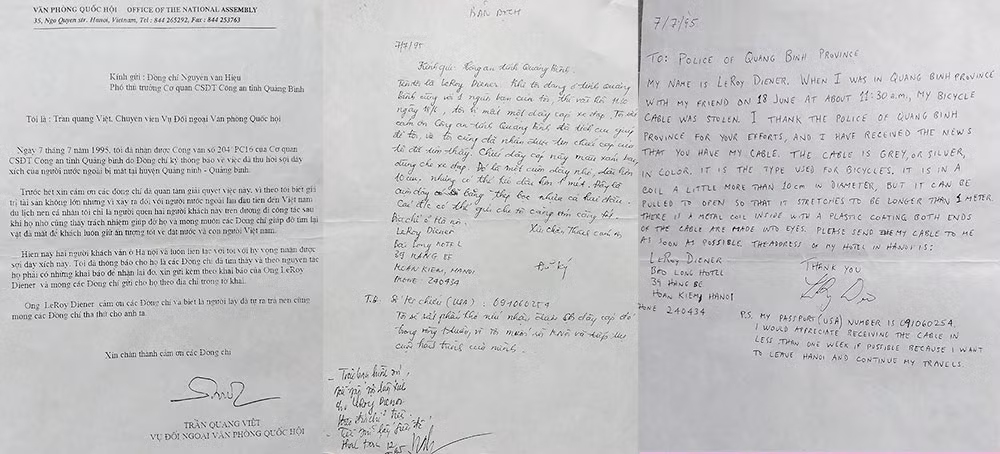 VĂN PHÒNG QUỐC HỘI OFFICE OF THE NATIONAL ASSEMBLY
35, Ngo Quyen str. Hanoi, Vietnam, Tel : 844 265292, Fax : 844 253763
Kính gửi : Đồng chí Nguyễn văn Hiệu
Phó thủ trưởng Cơ quan CSĐT Công an tỉnh Quảng Bình
Tôi là : Trần quang Việt. Chuyên viên Vụ Đối ngoại Văn phòng Quốc hội
Ngày 7 tháng 7 năm 1995, tôi đã nhận được Công văn số 204/ PC16 của Cơ quan
CSĐT Công an tỉnh Quảng bình do Đồng chí ký thông báo về việc đã thu hồi sợi dây
xích của người nước ngoài bị mất tại huyện Quảng ninh - Quảng bình.
Trước hết xin cảm ơn các đồng chí đã quan tâm giải quyết việc này, vì theo tôi biết giá
trị tài sản không lớn nhưng vì xảy ra đối với người nước ngoài lần đầu tiên đến Việt nam
du lịch nên cá nhân tôi chỉ là người quen hai người khách này trên đường đi công tác sau
khi họ nhờ cũng thấy trách nhiệm giúp đỡ họ và mong muốn các Đồng chí giúp đỡ tìm lại
vật đã mất để khách luôn giữ ấn tượng tốt về đất nước và con người Việt nam.
Hiện nay hai người khách vẫn ở Hà nội và luôn liên tạc với tôi với hy vọng nhận được
sợi dây xích này. Tôi đã thông báo cho họ là các Đồng chí đã tìm thấy và theo nguyên tắc
họ phải có những khai báo để nhận lại đồ, xin gửi kèm theo khai báo của Ông LeRoy
Diener và mong các Đồng chí gửi cho họ theo địa chỉ trong tờ khai.
Ông LeRoy Diener cảm ơn các Đồng chí và biết là người lấy đã tự ra trả nên cũng
mong các Đồng chí tha thứ cho anh ta.
Xin chân thành cảm ơn các Đồng chí
TRẦN QUANG VIỆT
VỤ ĐỐI NGOẠI VĂN PHÒNG QUỐC HỘI
BẢN DỊCH
7/7/95
Kính gửi: Công an tỉnh Quảng Bình.
Tên tôi là LeRoy Diener. Khi tôi đang ở tỉnh Quảng
Bình cùng với 1 người bạn của tôi,
ngày 18/6, tôi bị mất một dây cáp xe đạp. Tôi xin
cảm ơn Công an tỉnh Quảng Bình đã
dùng cho xe đạp. Đó là một cuộn dây nhỏ,
10cm, nhưng có thể kéo dài hơn 1 mét.
Địa chỉ ở Hà nội
LeRoy Diener
Bao Long HOTEL
39 HANG BE
HOAN KIEM, HANOI
PHONE 240434
Xin chân thành cảm ơn,
Đã ký
T.B. Số hộ chiếu (USA) : 091060254
của hành trình của mình.
LeRoy Diener
7/7/95
TO: POLICE OF QUANG BINH PROVINCE
MY NAME IS LEROY DIENER. WHEN I WAS IN QUANG BINH PROVINCE
WITH MY FRIEND ON 18 JUNE AT ABOUT 11:30 a.m., MY BICYCLE
CABLE WAS STOLEN. I THANK THE POLICE OF QUANG BINH
PROVINCE FOR YOUR EFFORTS, AND I HAVE RECEIVED THE NEWS
THAT YOU HAVE MY CABLE. THE CABLE IS GREY, OR SILVER,
IN COLOR. IT IS THE TYPE USED FOR BICYCLES. IT IS IN A
COIL A LITTLE MORE THAN 10cm IN DIAMETER, BUT IT CAN BE
PULLED TO OPEN SO THAT IT STRETCHES TO BE LONGER THAN 1 METER.
THERE IS A METAL COIL INSIDE WITH A PLASTIC COATING BOTH ENDS
OF THE CABLE ARE MADE INTO EYES. PLEASE SEND MY CABLE TO ME
AS SOON AS POSSIBLE. THE ADDRESS OF MY HOTEL IN HANOI IS:
LEROY DIENER
BAO LONG HOTEL
39 HANG BE
HOAN KIEM, HANOI
PHONE 240434
THANK YOU
P.S. MY PASSPORT (USA) NUMBER IS 091060254.
I WOULD APPRECIATE RECEIVING THE CABLE IN
LESS THAN ONE WEEK IF POSSIBLE BECAUSE I WANT
TO LEAVE HANOI AND CONTINUE MY TRAVELS.